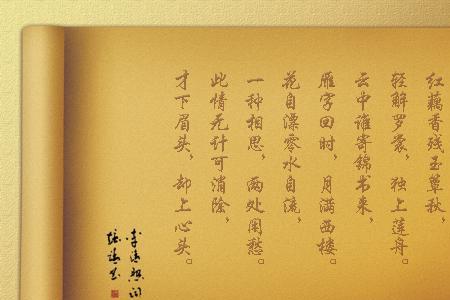 红藕香残玉簟秋，
轻解罗裳，独上莲舟。
云中谁寄锦书来，
雁字回时，月满西楼。
花自漂零水自流，
一种相思，两处闲愁。
此情无计可消除，
才下眉头，却上心头。
李清照词